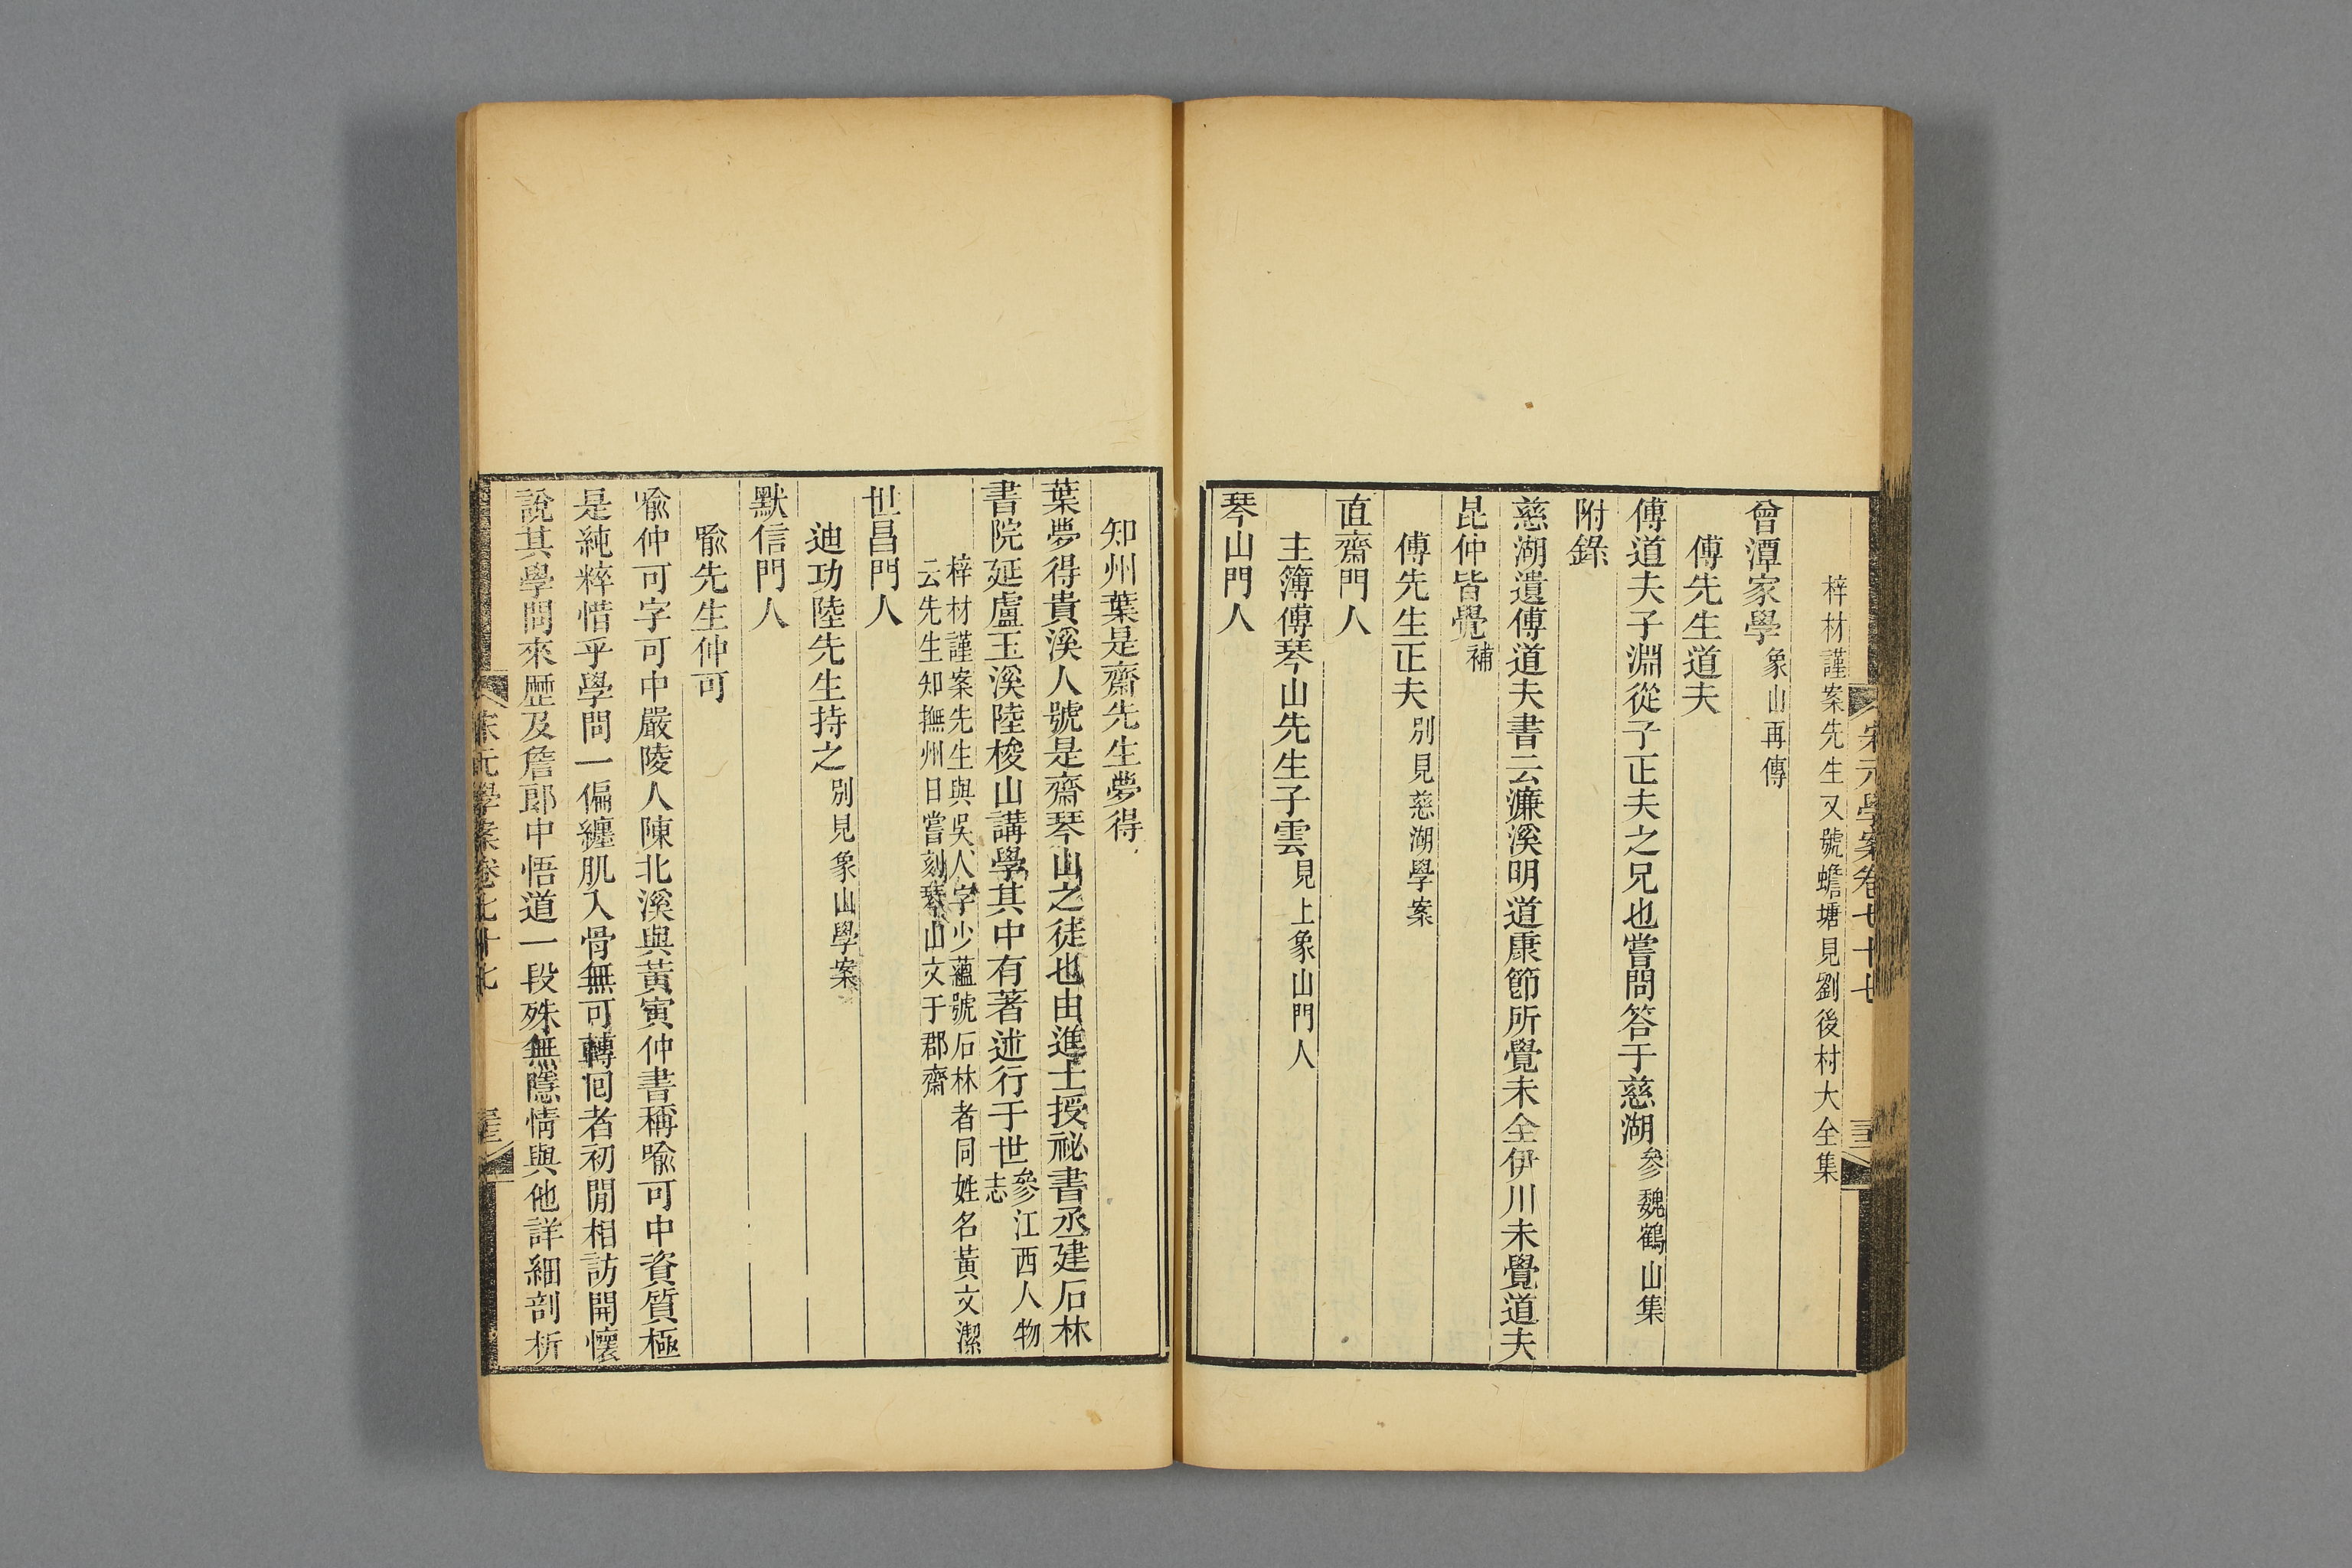 宋元學案卷七十七
梓材謹案先生又號蟾塘見劉後村大全集
曾潭家學象山再傳
傅先生道夫
傅道夫子淵從子正夫之兄也嘗問答于慈湖參魏鶴山集
附錄
慈湖遺傅道夫書云濂溪明道康節所覺未全伊川未覺道夫
昆仲皆覺補
傅先生正夫別見慈湖學案
直齋門人
主簿傅琴山先生子雲見上象山門人
琴山門人
知州葉是齋先生夢得
葉夢得貴溪人號是齋琴山之徒也由進士授祕書丞建石林
書院延盧玉溪陸梭山講學其中有著述行于世參江西人物
志
梓材謹案先生與吳人字少蘊號石林者同姓名黃文潔
云先生知撫州日嘗刻琴山文于郡齋
世昌門人
迪功陸先生持之別見象山學案
默信門人
喩先生仲可
喩仲可字可中嚴陵人陳北溪與黃寅仲書稱喩可中資質極
是純粹惜乎學問一偏纏肌入骨無可轉囘者初閒相訪開懷
說其學問來歷及詹郎中悟道一段殊無隱情與他詳細剖析
宋元學案卷七十七